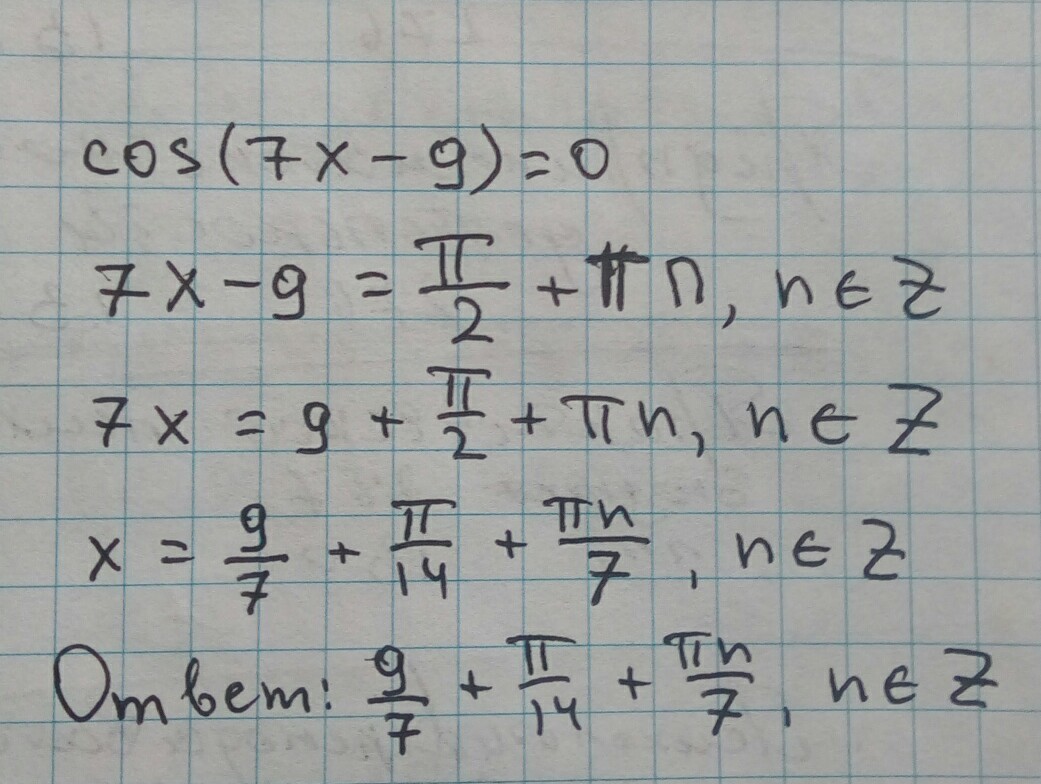 cos(7x-9)=0
7x-9 = π/2 + πn, n∈Z
7x = 9 + π/2 + πn, n∈Z
x = 9/7 + π/14 + πn/7, n∈Z
Ответ: 9/7 + π/14 + πn/7, n∈Z